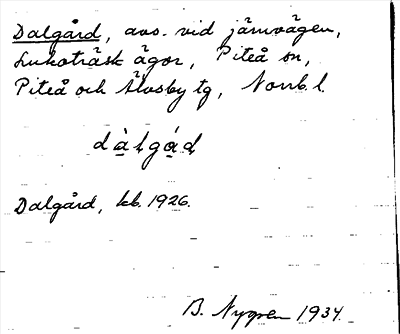 Dalgård, avs. vid järnvägen,
Lukoträsk ägor, Piteå sn,
Piteå och Älvsby tg, Norrb. l.
dàlgád
Dalgård, kb. 1926.
B. Nygren 1934.